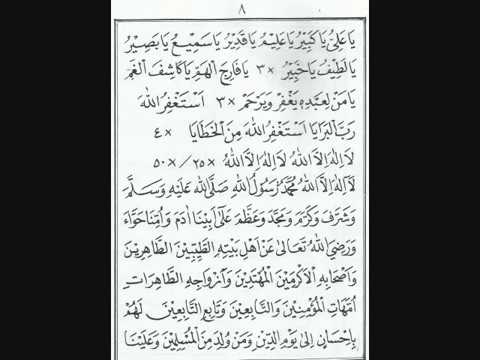 ٨
يَا عَلِيُّ يَا كَبِيْرُ يَا عَلِيْمُ يَا قَدِيْرُ يَا سَمِيْعُ يَا بَصِيْرُ
يَا لَطِيْفُ يَا خَبِيْرُ ×٣ يَا فَارِجَ الْهَمِّ يَا كَاشِفَ الْغَمِّ
يَا مَنْ لِعَبْدِهِ يَغْفِرُ وَيَرْحَمُ ×٣ اَسْتَغْفِرُ اللهَ
رَبَّ الْبَرَايَا اَسْتَغْفِرُ اللهَ مِنَ الْخَطَايَا ×٤
لَا اِلٰهَ اِلَّا اللهُ لَا اِلٰهَ اِلَّا اللهُ ×٢٥ / ×٥٠
لَا اِلٰهَ اِلَّا اللهُ مُحَمَّدٌ رَسُوْلُ اللهِ صَلَّى اللهُ عَلَيْهِ وَسَلَّمَ
وَشَرَّفَ وَكَرَّمَ وَمَجَّدَ وَعَظَّمَ عَلَى اَبِيْنَا اٰدَمَ وَاُمِّنَا حَوَّاءَ
وَرَضِيَ اللهُ تَعَالَى عَنْ اَهْلِ بَيْتِهِ الطَّيِّبِيْنَ الطَّاهِرِيْنَ
وَاَصْحَابِهِ الْاَكْرَمِيْنَ الْمُهْتَدِيْنَ وَاَزْوَاجِهِ الطَّاهِرَاتِ
اُمَّهَاتِ الْمُؤْمِنِيْنَ وَالتَّابِعِيْنَ وَتَابِعِ التَّابِعِيْنَ لَهُمْ
بِاِحْسَانٍ اِلَى يَوْمِ الدِّيْنِ وَمَنْ وُلِدَ مِنَ الْمُسْلِمِيْنَ وَعَلَيْنَا